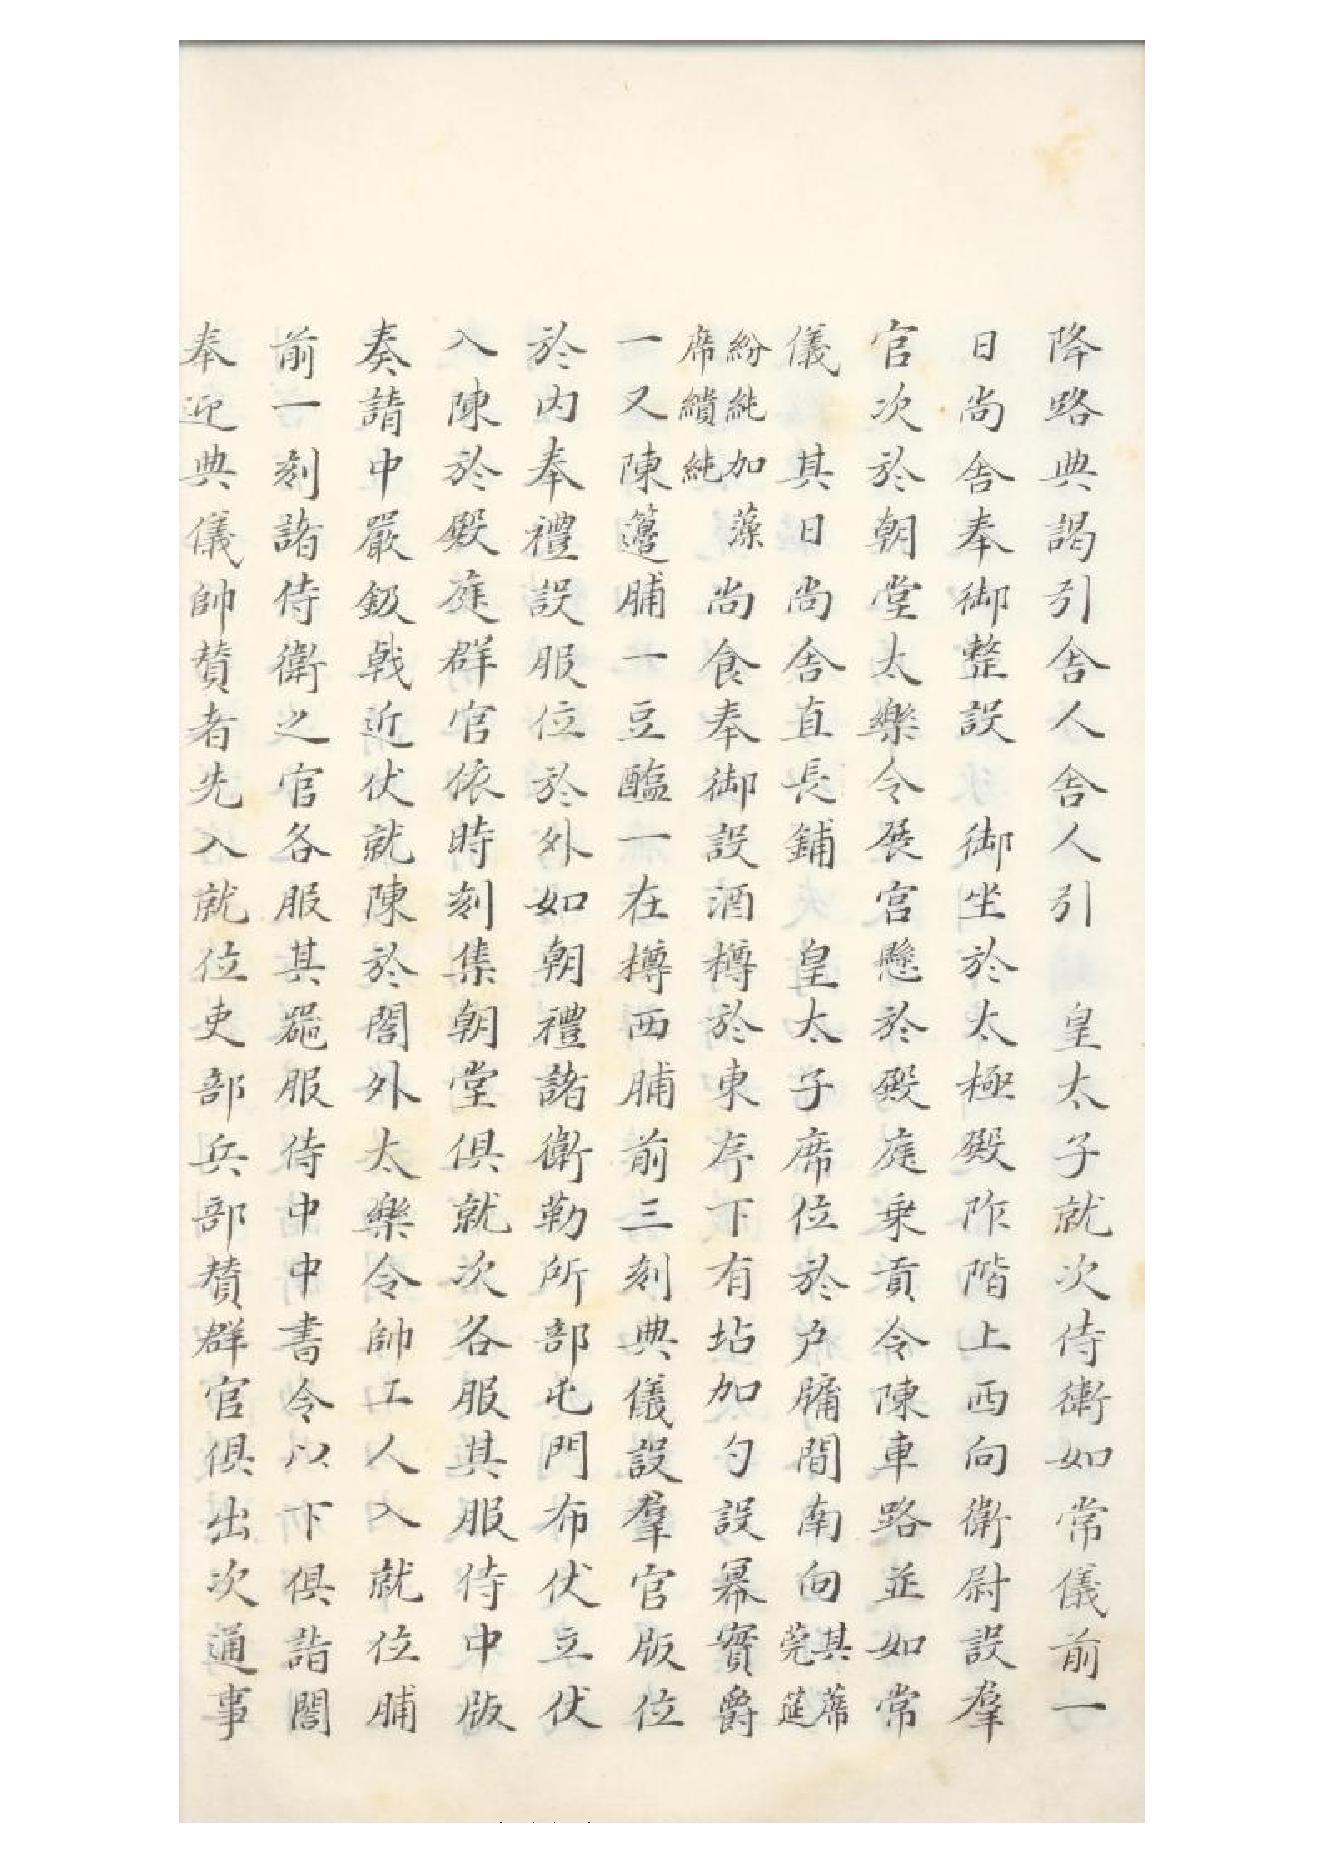 降路典謁引舍人舍人引　皇太子就次侍衛如常儀前一
日尚舍奉御整設　御坐於太極殿阼階上西向衛尉設羣
官次於朝堂太樂令展宮懸於殿庭乗黃令陳車路並如常
儀　其日尚舍直長鋪　皇太子席位於戶牖間南向其蓆莞筵
紛純加藻席繢純尚食奉御設酒樽於東序下有坫加勺設冪實爵
一又陳籩脯一豆醢一在樽西脯前三刻典儀設羣官版位
於内奉禮設服位於外如朝禮諸衛勒所部屯門布伏立伏
入陳於殿庭群官依時刻集朝堂俱就次各服其服侍中版
奏請中嚴鈒戟近伏就陳於閤外太樂令帥工人入就位脯
前一刻諸侍衛之官各服其器服侍中中書令以下俱詣閤
奉迎典儀帥賛者先入就位吏部兵部賛群官俱出次通事